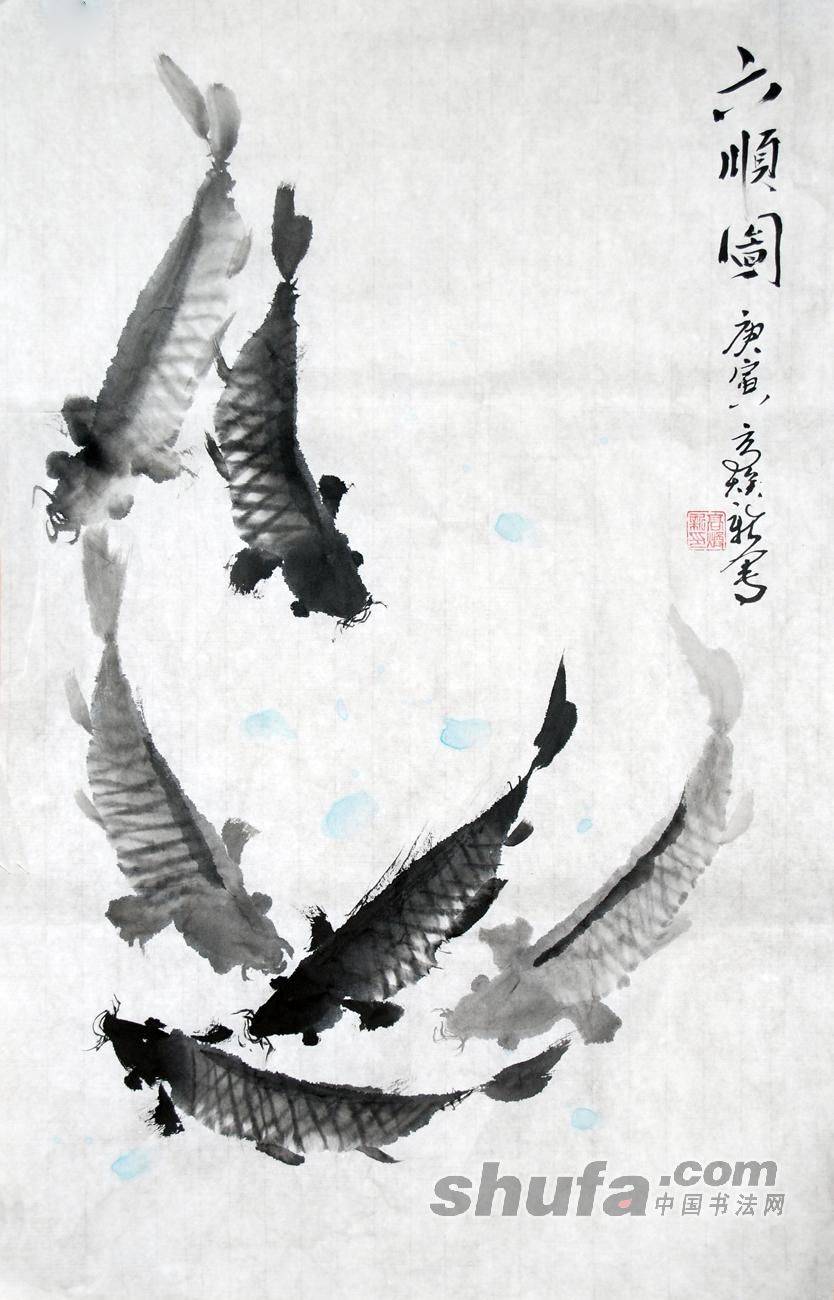 六順圖
庚寅 高 新寫
shufa.com
中国书法网